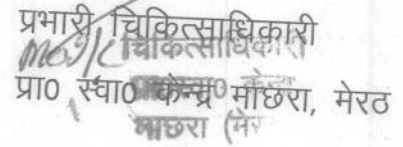 प्रभारी चिकित्साधिकारी
MO I/C चिकित्साधिकारी
प्रा0 स्वा0 केन्द्र माछरा, मेरठ
माछरा (मेर